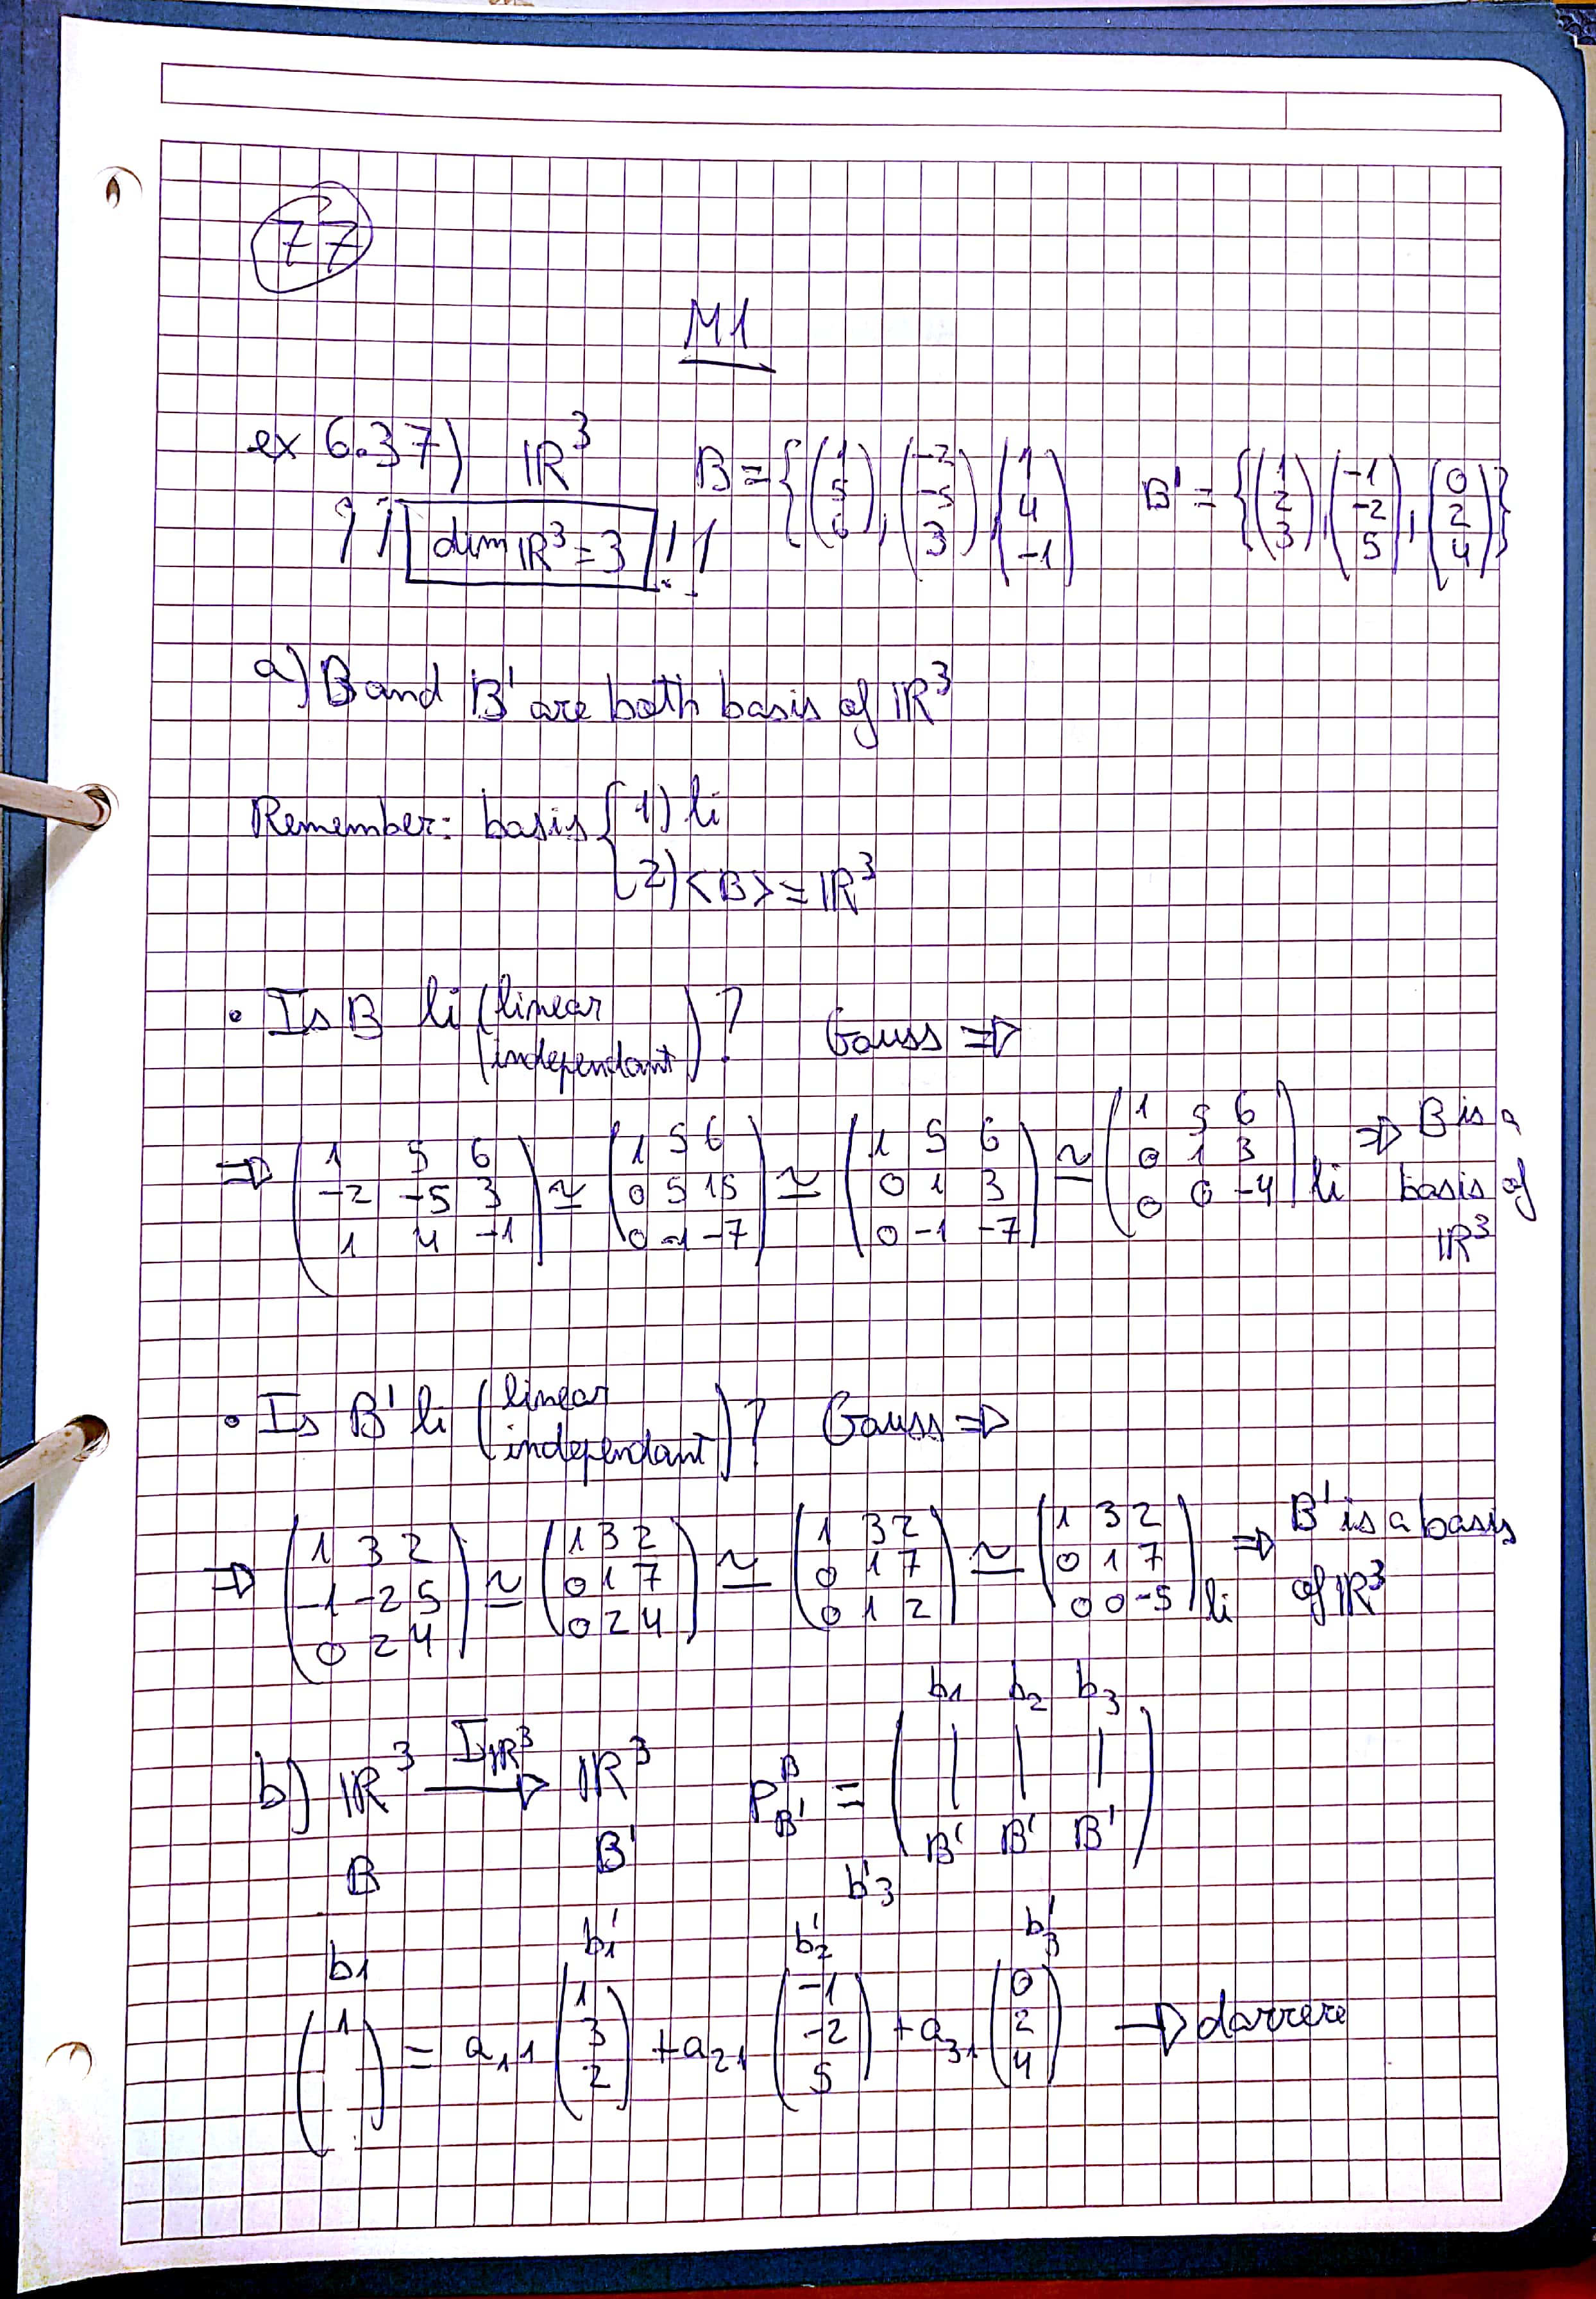 77
M1
ex 6.37) ℝ³ B = {(1 5 6), (-2 -5 3), (1 4 -1) B' = {(1 2 3), (-1 -2 5), (0 2 4)}
¡¡ dim ℝ³ = 3 !!
a) B and B' are both basis of ℝ³
Remember: basis { 1) li
2) <B> = ℝ³
• Is B li (linear independant)? Gauss ⇒
⇒ (1 5 6 / -2 -5 3 / 1 4 -1) ≃ (1 5 6 / 0 5 15 / 0 -1 -7) ≃ (1 5 6 / 0 1 3 / 0 -1 -7) ≃ (1 5 6 / 0 1 3 / 0 0 -4) li ⇒ B is a basis of ℝ³
• Is B' li (linear independant)? Gauss ⇒
⇒ (1 3 2 / -1 -2 5 / 0 2 4) ≃ (1 3 2 / 0 1 7 / 0 2 4) ≃ (1 3 2 / 0 1 7 / 0 1 2) ≃ (1 3 2 / 0 1 7 / 0 0 -5) li ⇒ B' is a basis of ℝ³
b₁ b₂ b₃
b) ℝ³ I_ℝ³ → ℝ³ P^B_B' = ( | | | )
B B' B' B' B'
b'₃
b₁ b'₁ b'₂ b'₃
(1 ) = a₁₁ (1 3 2) + a₂₁ (-1 -2 5) + a₃₁ (0 2 4) → darrere